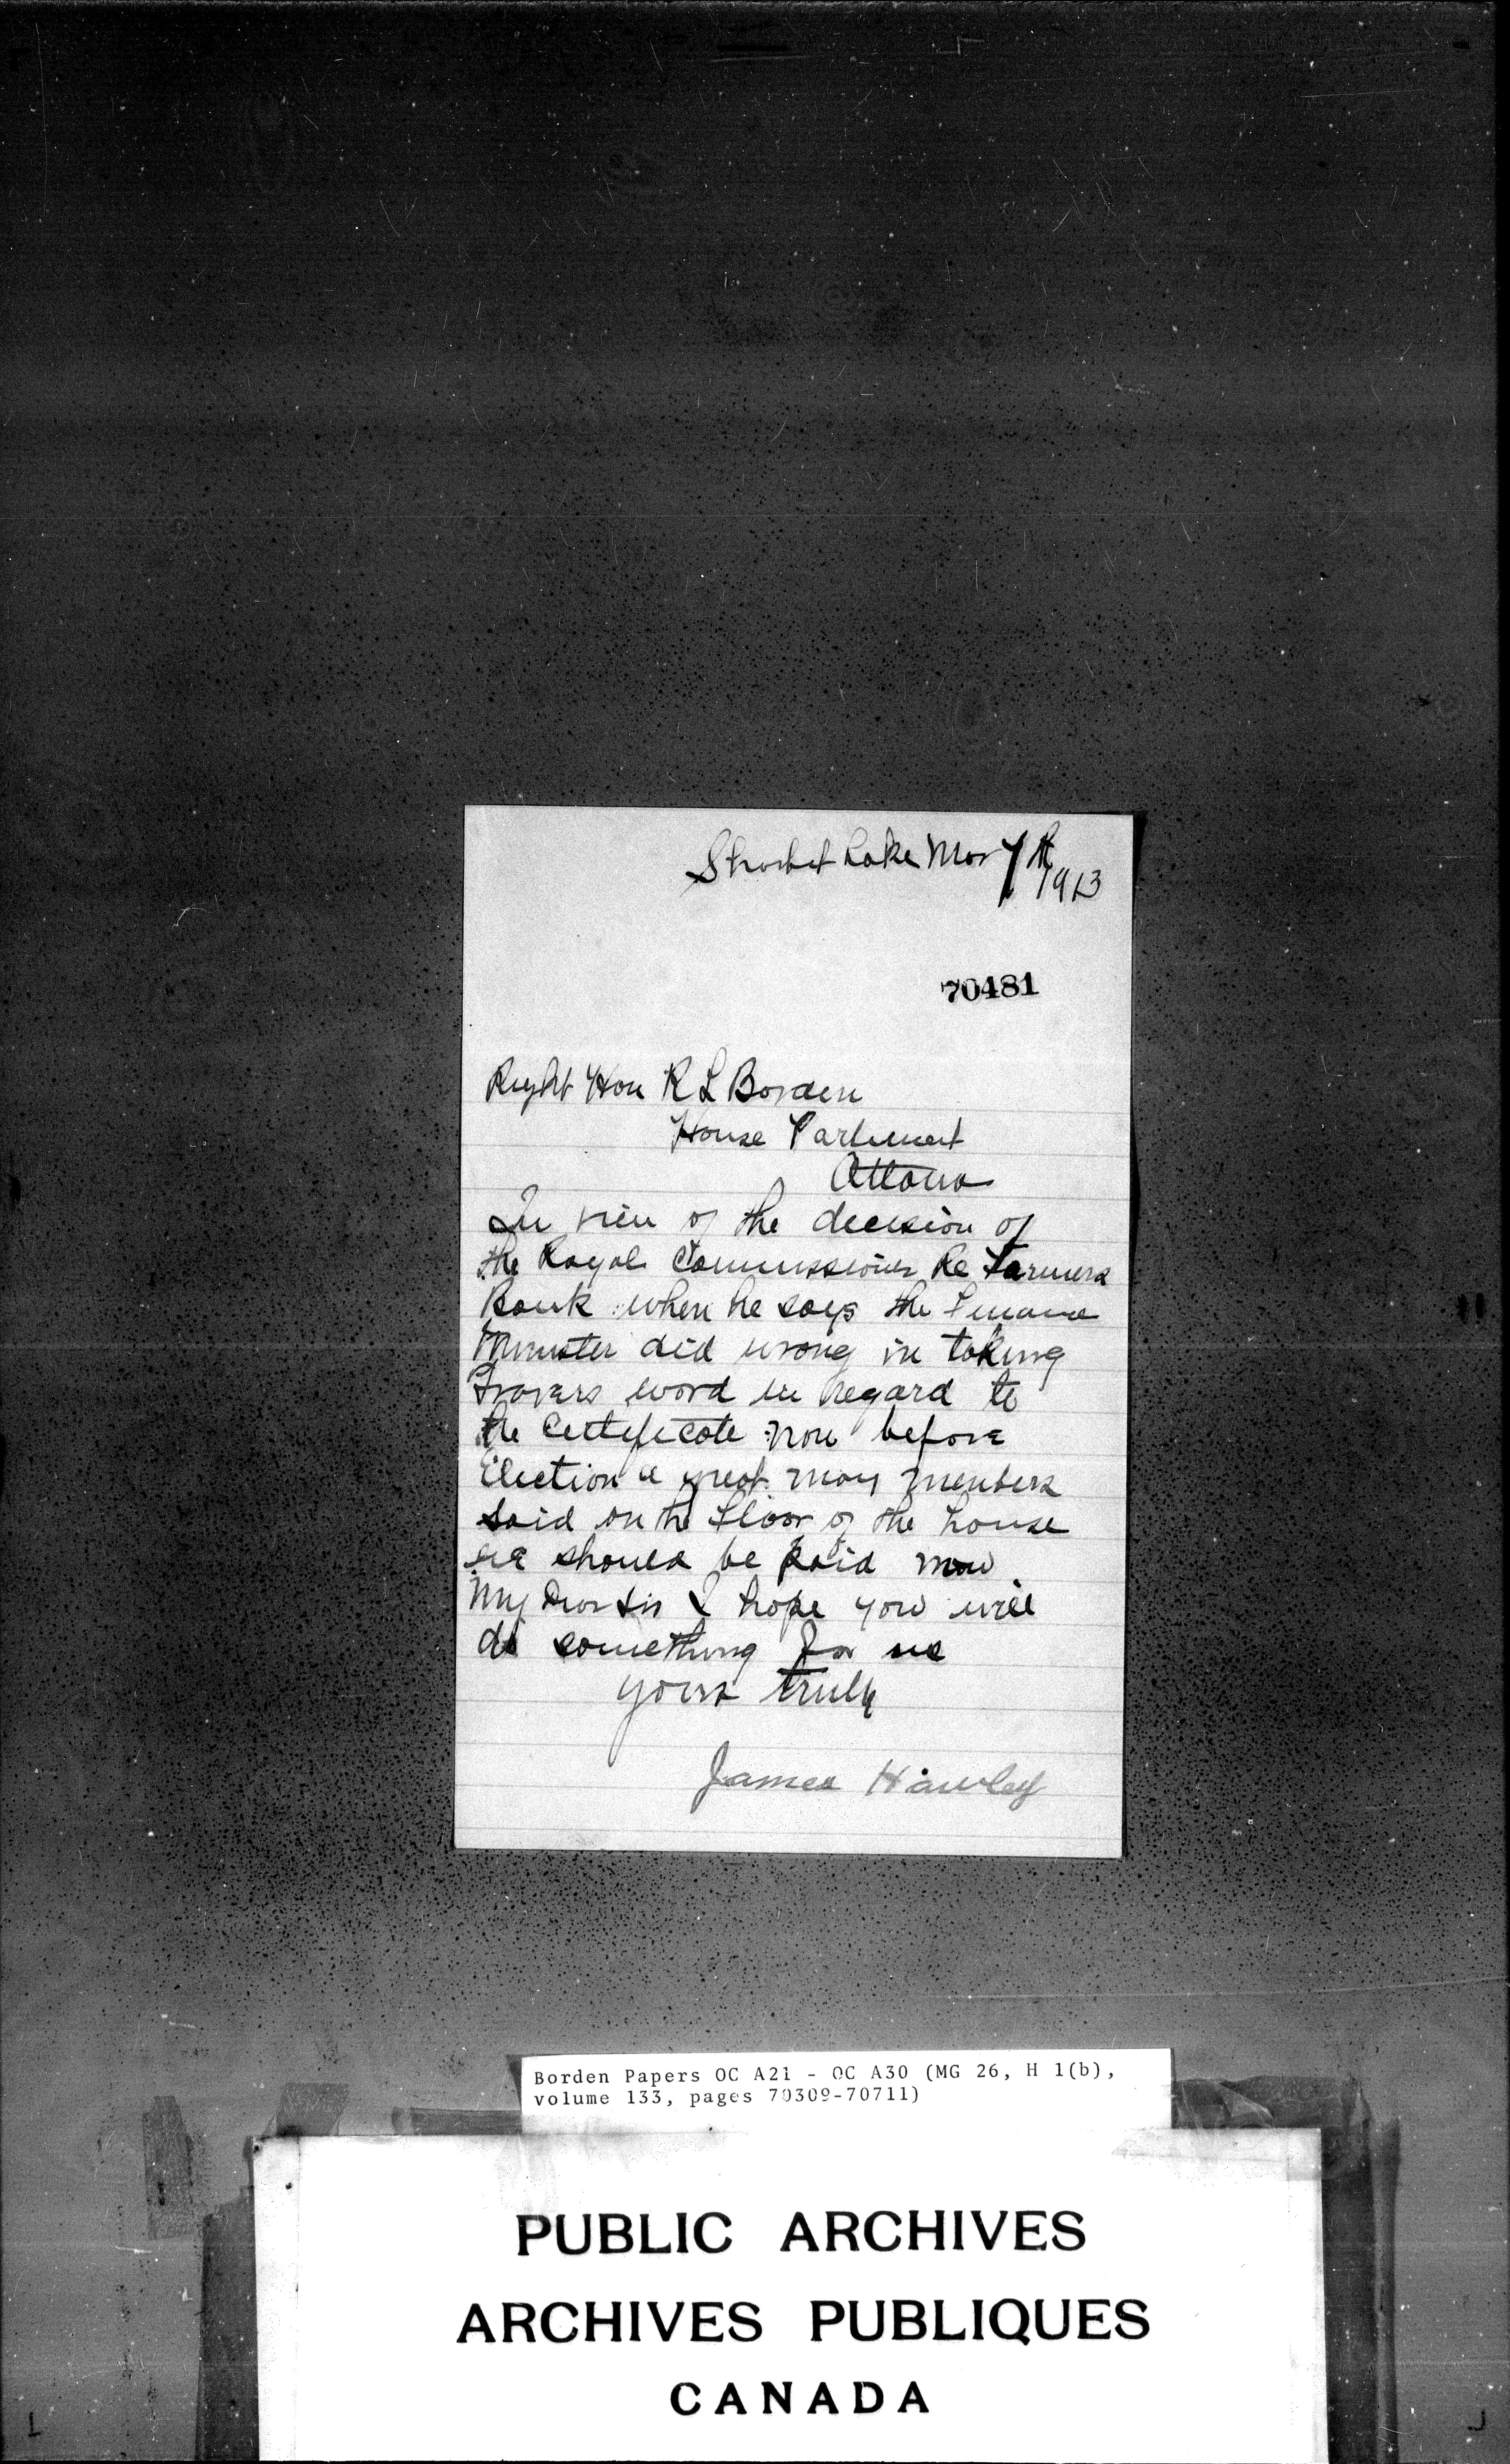 Shorbet Lake Mar 7th
1913
70481
Right Hon R L Borden
House Parliment
Ottawa
In view of the decision of
the Royal Commissioner Re Farmers
Bank when he says the Finance
Minister did wrong in taking
Travers word in regard to
the Certificate now before
Election a great many members
said on the floor of the house
we should be paid now
My Dear Sir I hope you will
do something for us
yours truly
James Hawley
Borden Papers OC A21 - OC A30 (MG 26, H 1(b),
volume 133, pages 70309-70711)
PUBLIC ARCHIVES
ARCHIVES PUBLIQUES
CANADA